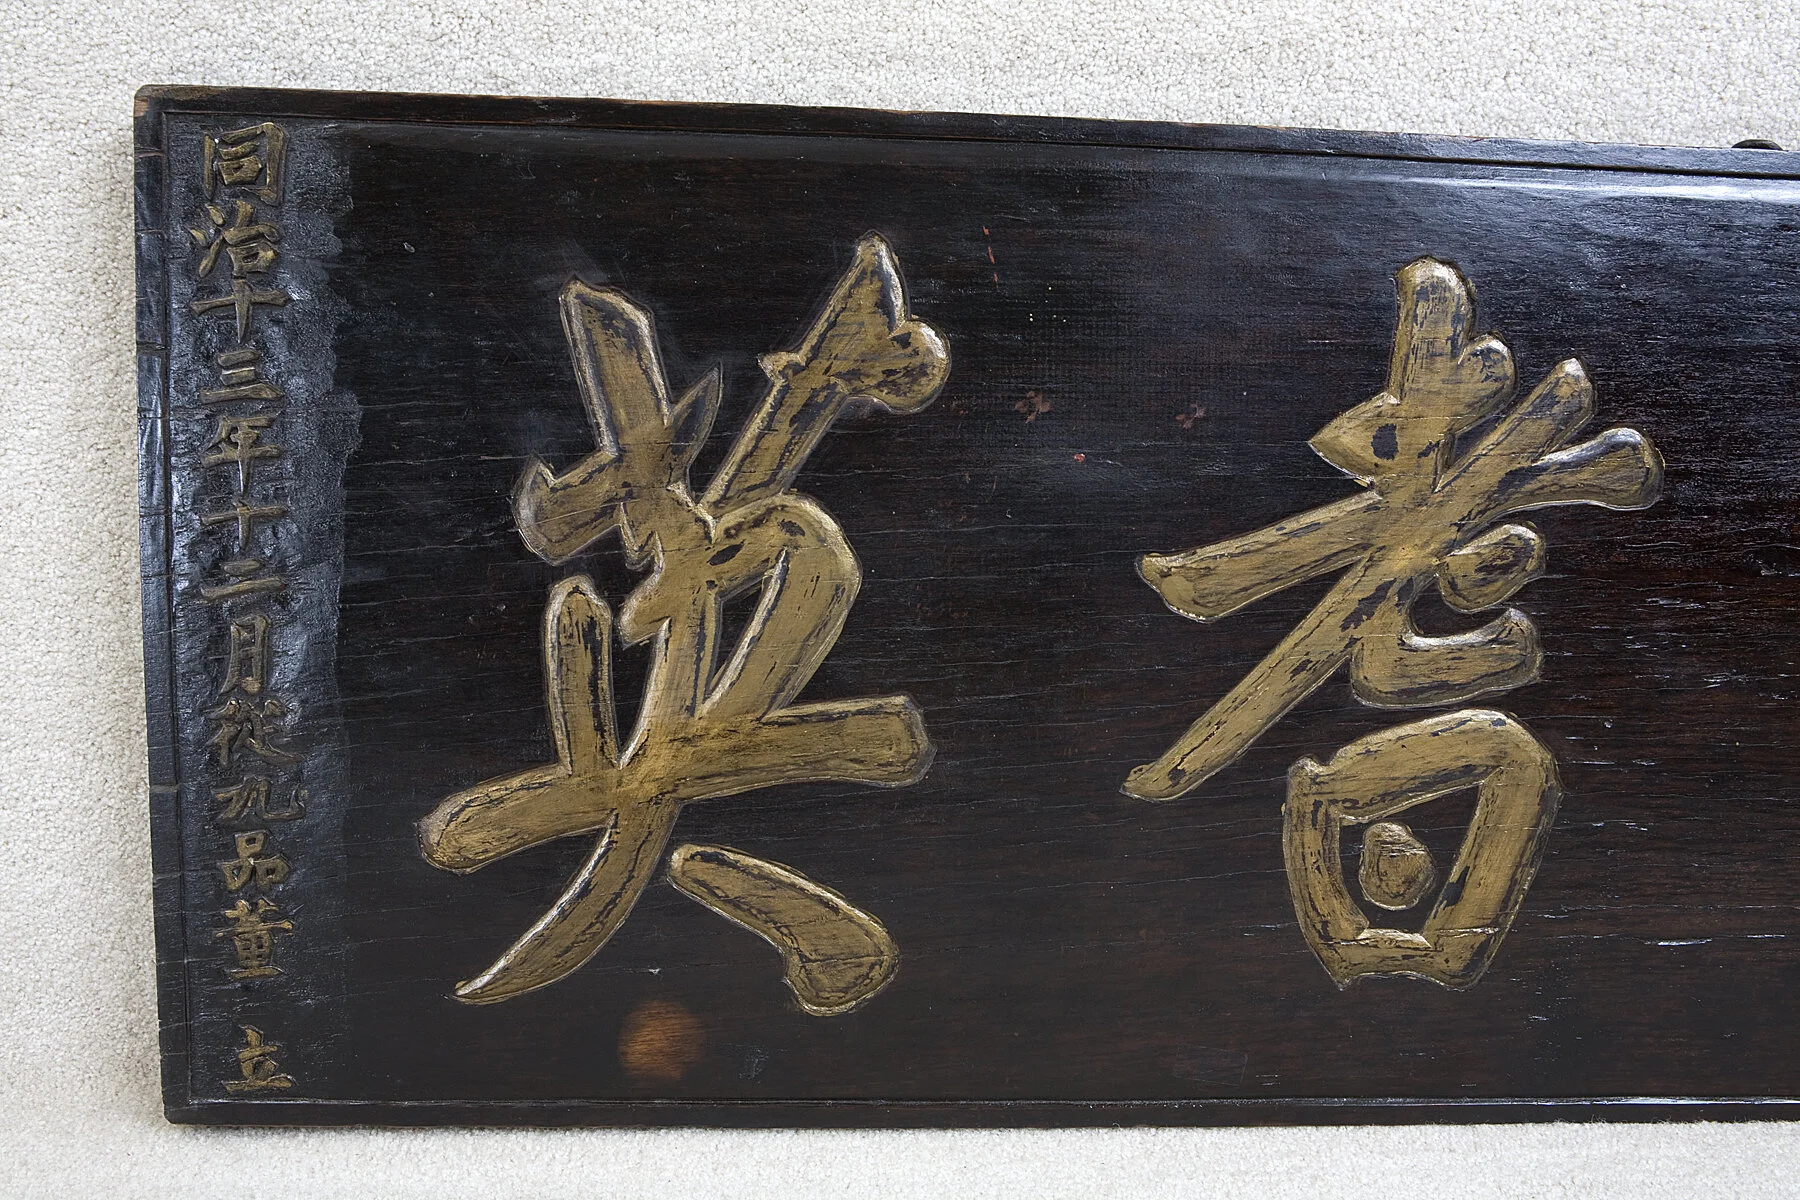 耆英
同治十三年十二月從九品董 立